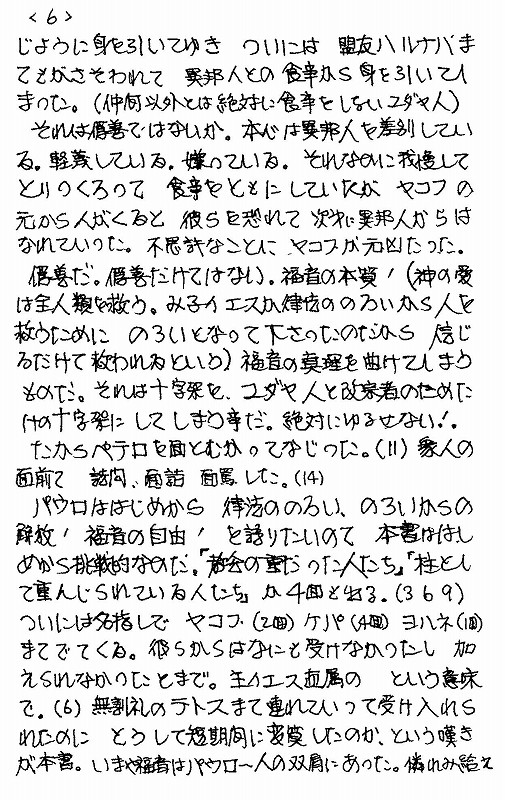 <6>
じように身を引いてゆき ついには 盟友バルナバま
でもがさそわれて 異邦人との食事から身を引いてし
まった。(仲間以外とは絶対に食事をしないユダヤ人)
それは偽善ではないか。本心は異邦人を差別してい
る。軽蔑している。嫌っている。それなのに我慢して
とりつくろって 食事をともにしていたが ヤコブの
元から人がくると 彼らを恐れて 次第に異邦人からは
なれていった。不思議なことに ヤコブが元凶だった。
偽善だ。偽善だけではない。福音の本質!(神の愛
は全人類を救う。み子イエスが律法ののろいから人を
救うために のろいとなって下さったのだから 信じ
るだけで救われるという)福音の真理を曲げてしまう
ものだ。それは十字架を、ユダヤ人と改宗者のためだ
けの十字架に してしまう事だ。絶対にゆるせない!。
だからペテロを面とむかってなじった。(11) 衆人の
面前で 詰問、面詰 面罵した。(14)
パウロははじめから 律法ののろい、のろいからの
解放!福音の自由!を語りたいので 本書ははじ
めから挑戦的なのだ。「教会の重だった人たち」「柱とし
て重んじられている人たち」が4回と出る。(3 6 9)
ついには名指しで ヤコブ(2回)ケパ(4回)ヨハネ(1回)
まででてくる。彼らからはなにも受けなかったし 加
えられなかったとまで。主イエス直属の という意味
で。(6) 無割礼のテトスまで連れていって受け入れら
れたのに どうして短期間に変質したのか、という嘆き
が本書。いまや福音はパウロ一人の双肩にあった。憐れみ給え